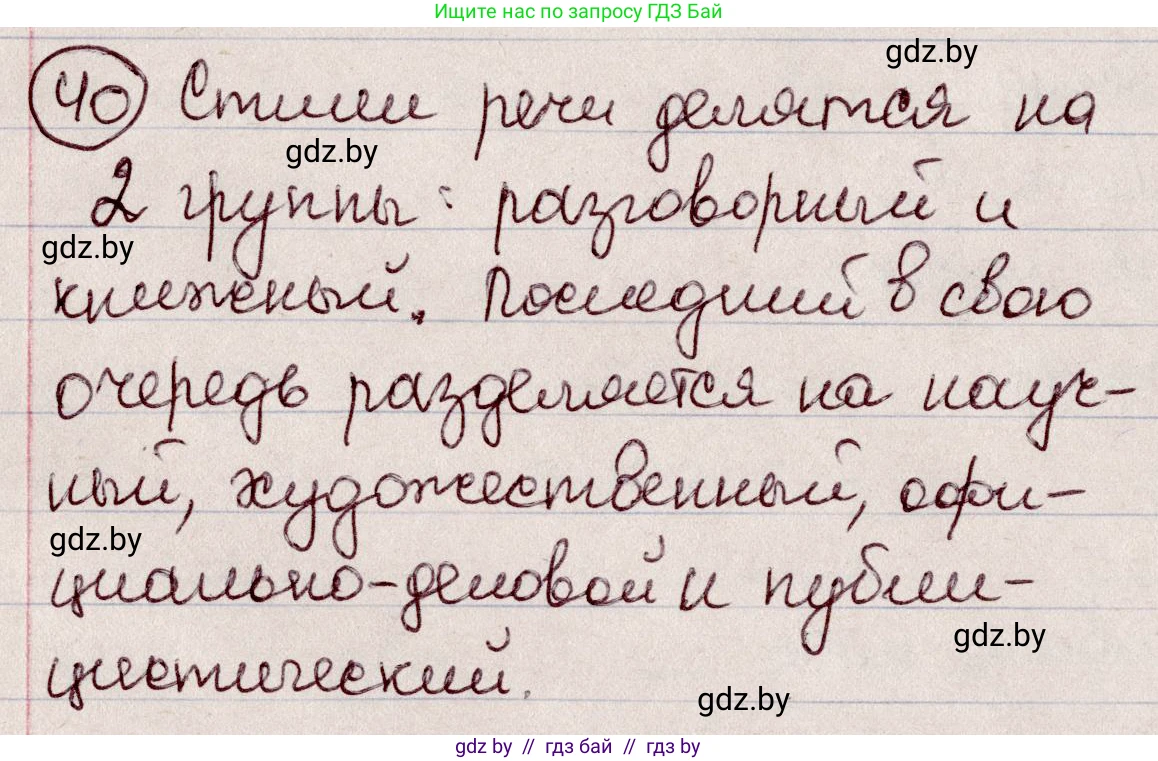 Ищите нас по запросу ГДЗ Бай
gdz.by
40 Стили речи делятся на
gdz.by
2 группы: разговорный и
gdz.by
книжный. Последний в свою
очередь разделяется на науч-
ный, художественный, офи-
gdz.by
циально-деловой и публи-
gdz.by
цистический.
gdz.by
gdz by // гдз бай // гдз by